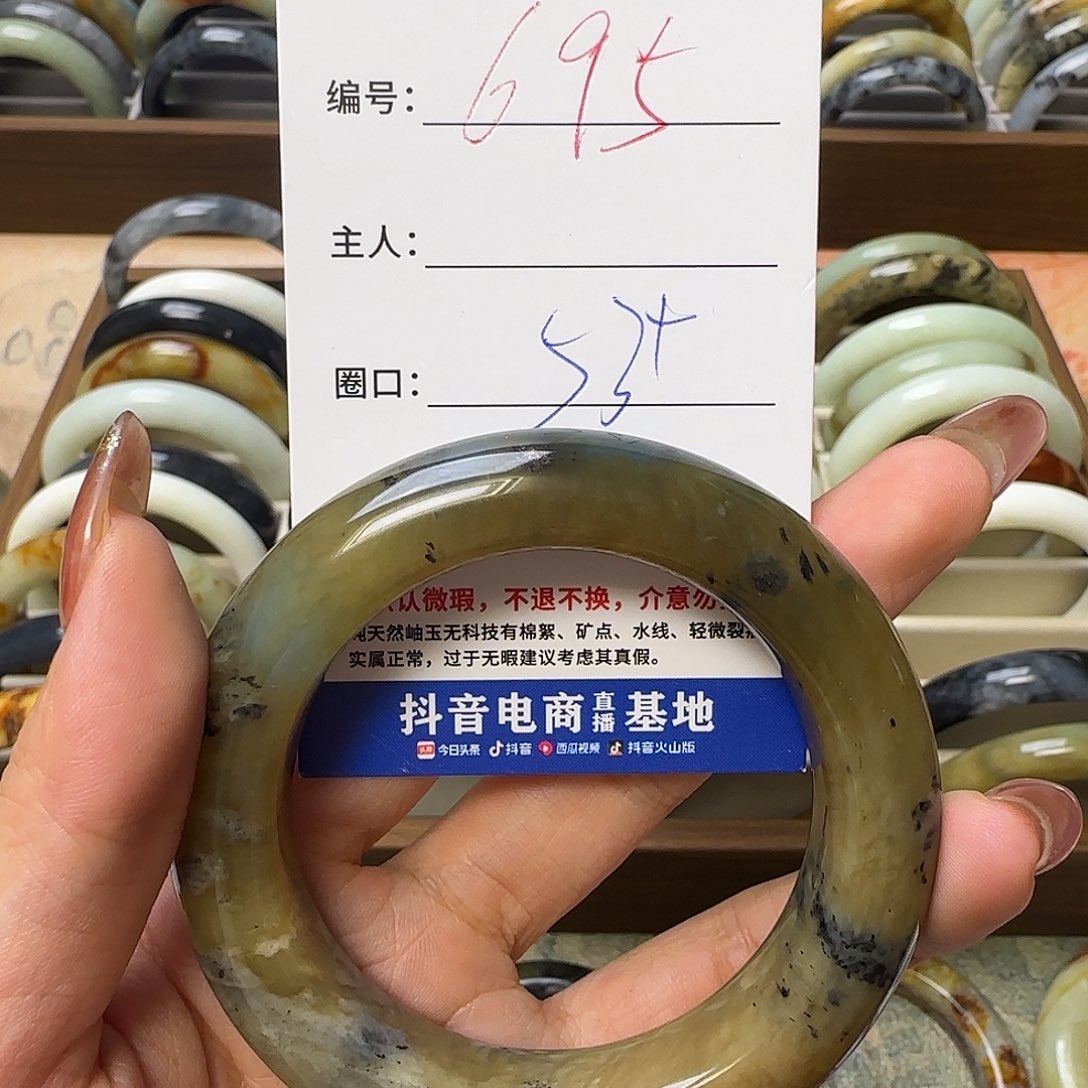 编号：695
主人：
圈口：53+
认微瑕，不退不换，介意勿
纯天然岫玉无科技有棉絮、矿点、水线、轻微裂
实属正常，过于无暇建议考虑其真假。
抖音电商直播基地
今日头条 抖音 西瓜视频 抖音火山版